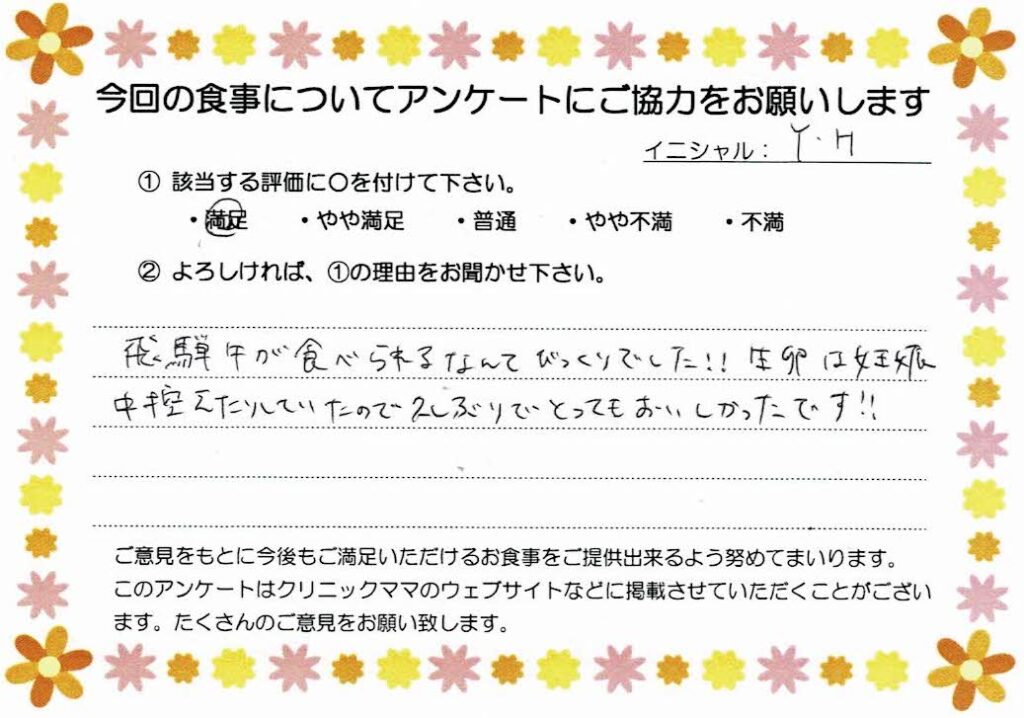 今回の食事についてアンケートにご協力をお願いします
イニシャル： Y・H
① 該当する評価に〇を付けて下さい。
・満足 ・やや満足 ・普通 ・やや不満 ・不満
② よろしければ、①の理由をお聞かせ下さい。
飛騨牛が食べられるなんてびっくりでした!! 生卵は妊娠
中控えたりしていたので久しぶりでとってもおいしかったです!!
ご意見をもとに今後もご満足いただけるお食事をご提供出来るよう努めてまいります。
このアンケートはクリニックママのウェブサイトなどに掲載させていただくことがござい
ます。たくさんのご意見をお願い致します。